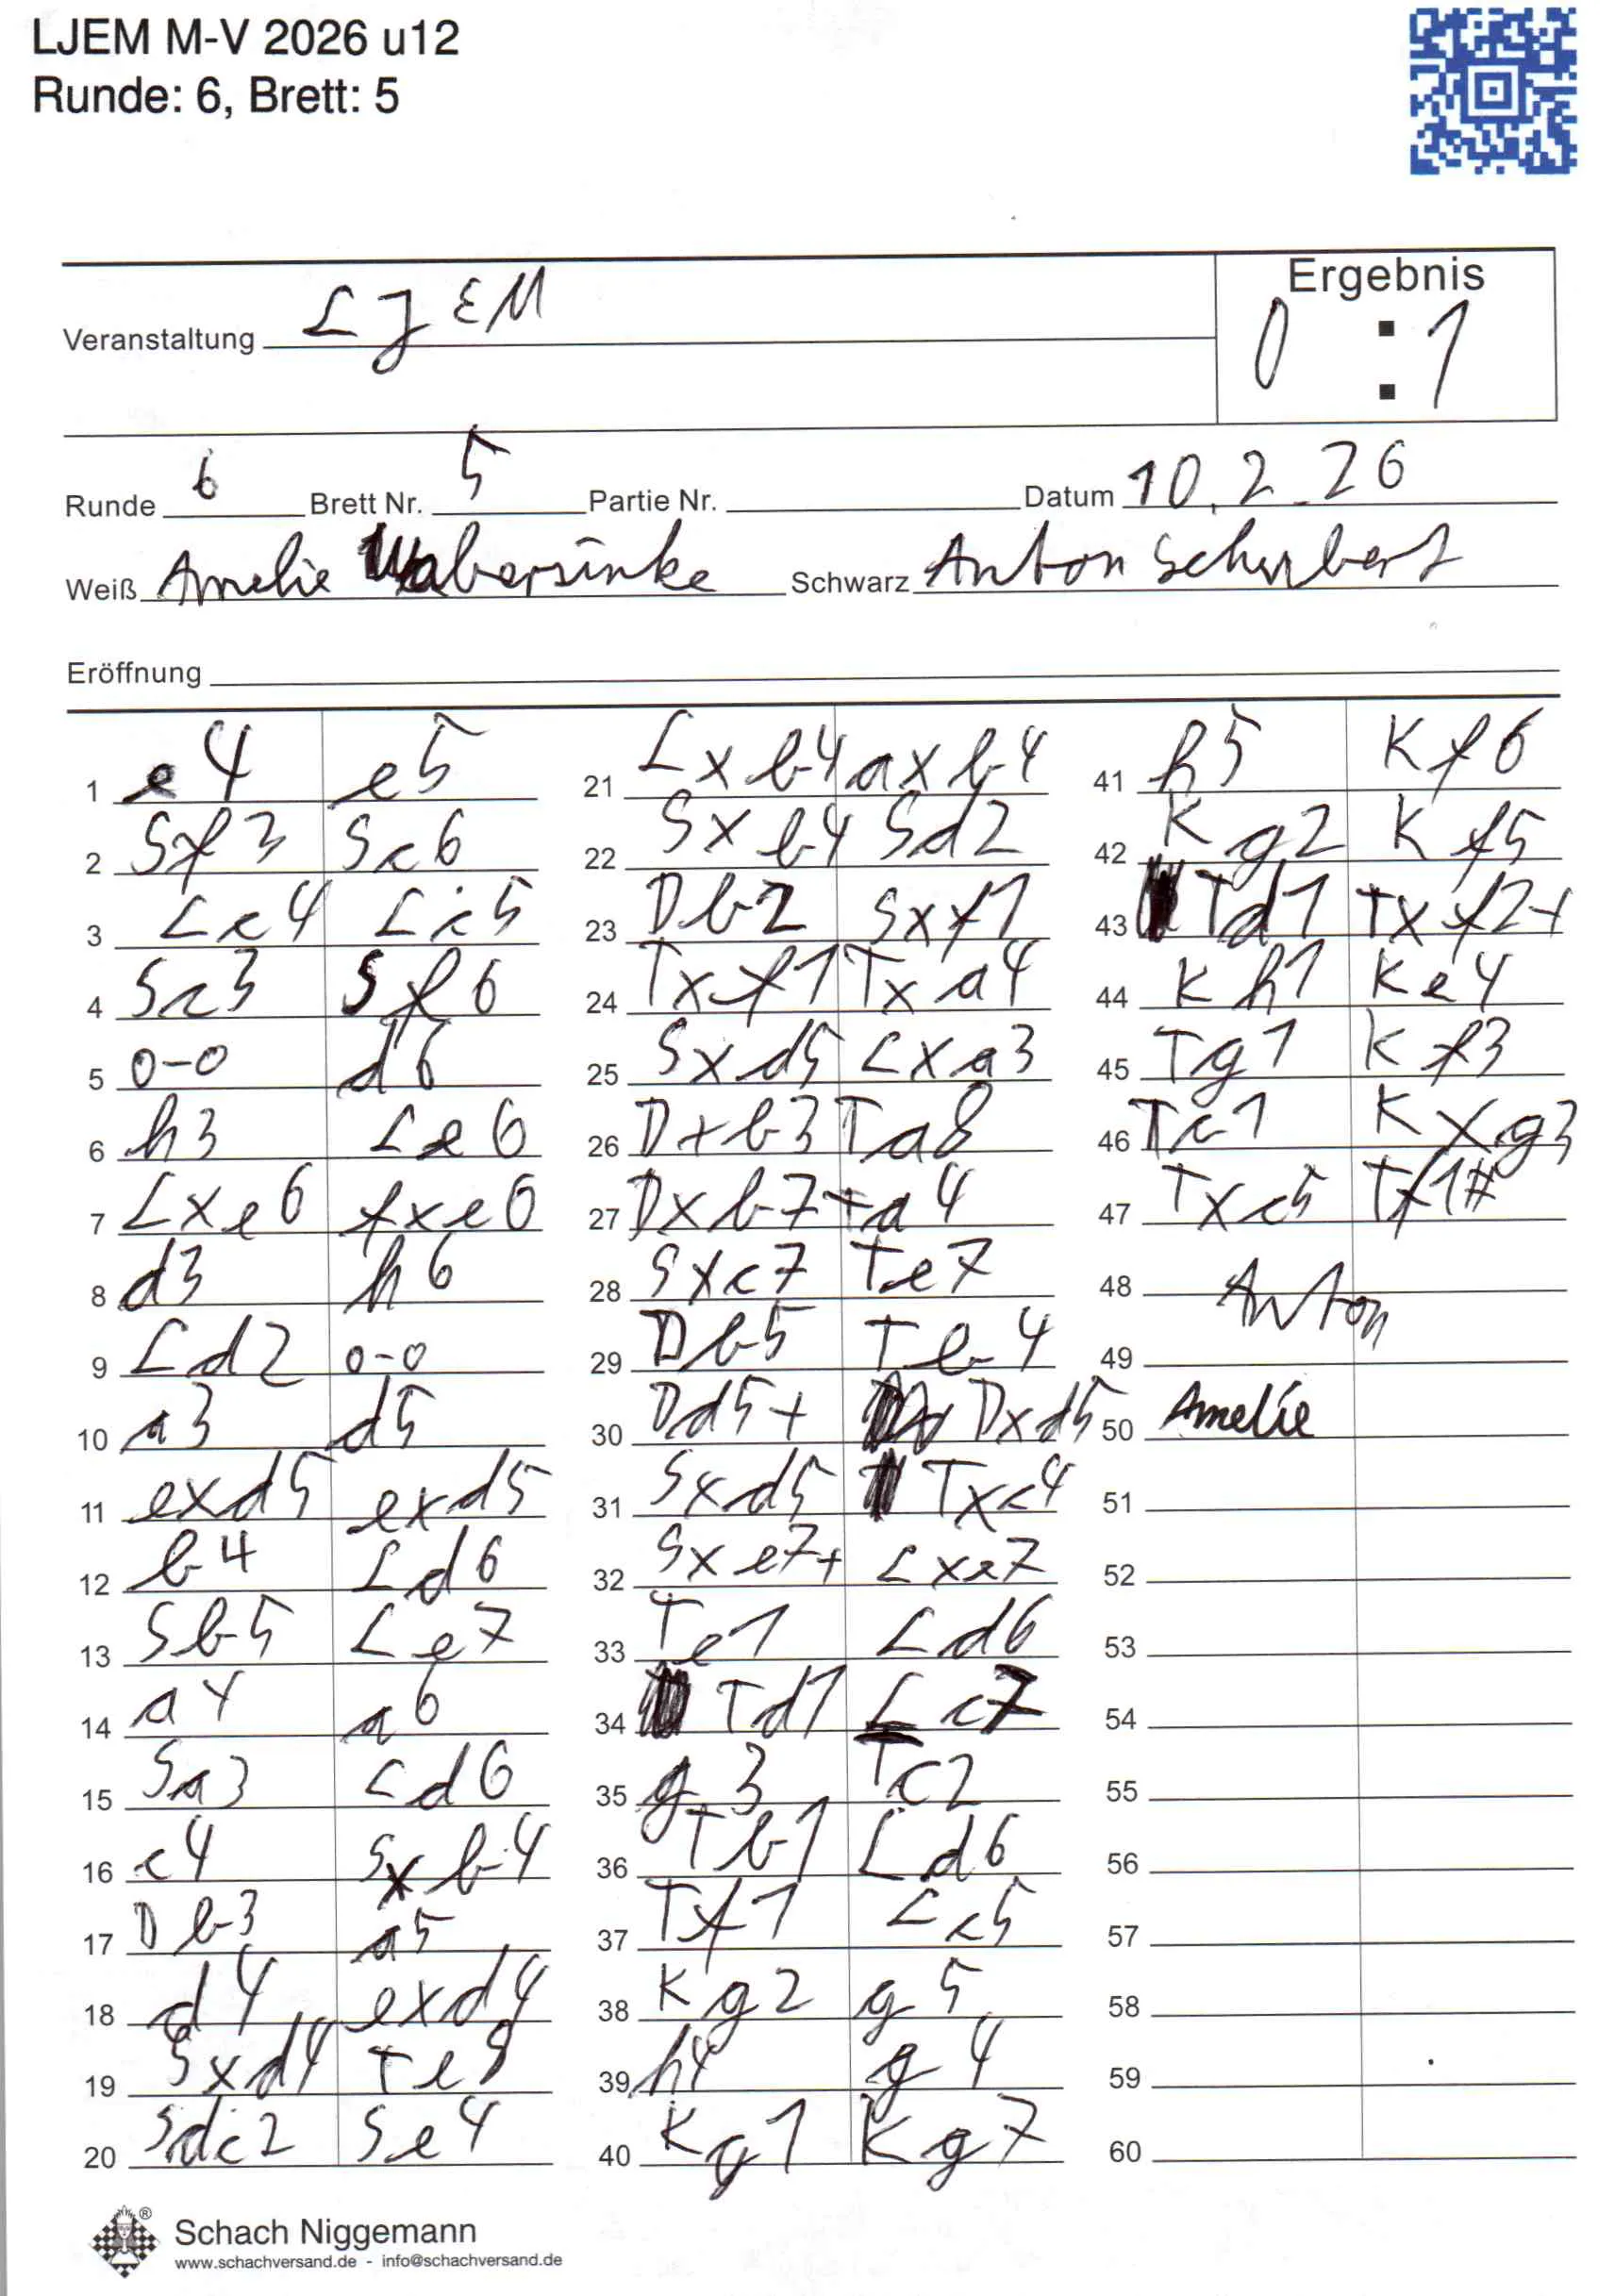 LJEM M-V 2026 u12
Runde: 6, Brett: 5
Ergebnis
Veranstaltung LJEM 0 : 1
Runde 6 Brett Nr. 5 Partie Nr. Datum 10.2.26
Weiß Amelie Wabersinke Schwarz Anton Schubert
Eröffnung
1 e4 e5
2 Sf3 Sc6
3 Lc4 Lc5
4 Sc3 Sf6
5 0-0 d6
6 h3 Le6
7 Lxe6 fxe6
8 d3 h6
9 Ld2 0-0
10 a3 d5
11 exd5 exd5
12 b4 Ld6
13 Sb5 Le7
14 a4 a6
15 Sa3 Ld6
16 c4 Sxb4
17 Db3 a5
18 d4 exd4
19 Sxd4 Te8
20 Sdc2 Se4
21 Lxb4 axb4
22 Sxb4 Sd2
23 Db2 Sxf1
24 Txf1 Txa4
25 Sxd5 Lxa3
26 Dxb3 Ta8
27 Dxb7 Ta4
28 Sxc7 Te7
29 Db5 Tb4
30 Dd5+ Dxd5
31 Sxd5 Txc4
32 Sxe7+ Lxe7
33 Te1 Ld6
34 Td1 Lc7
35 g3 Tc2
36 Tb1 Ld6
37 Tf1 Lc5
38 Kg2 g5
39 h4 g4
40 Kg1 Kg7
41 h5 Kf6
42 Kg2 Kf5
43 Td1 Txf2+
44 Kh1 Ke4
45 Tg1 Kf3
46 Tc1 Kxg3
47 Txc5 Tf1#
48 Anton
49
50 Amelie
51
52
53
54
55
56
57
58
59
60
®
Schach Niggemann
www.schachversand.de - info@schachversand.de